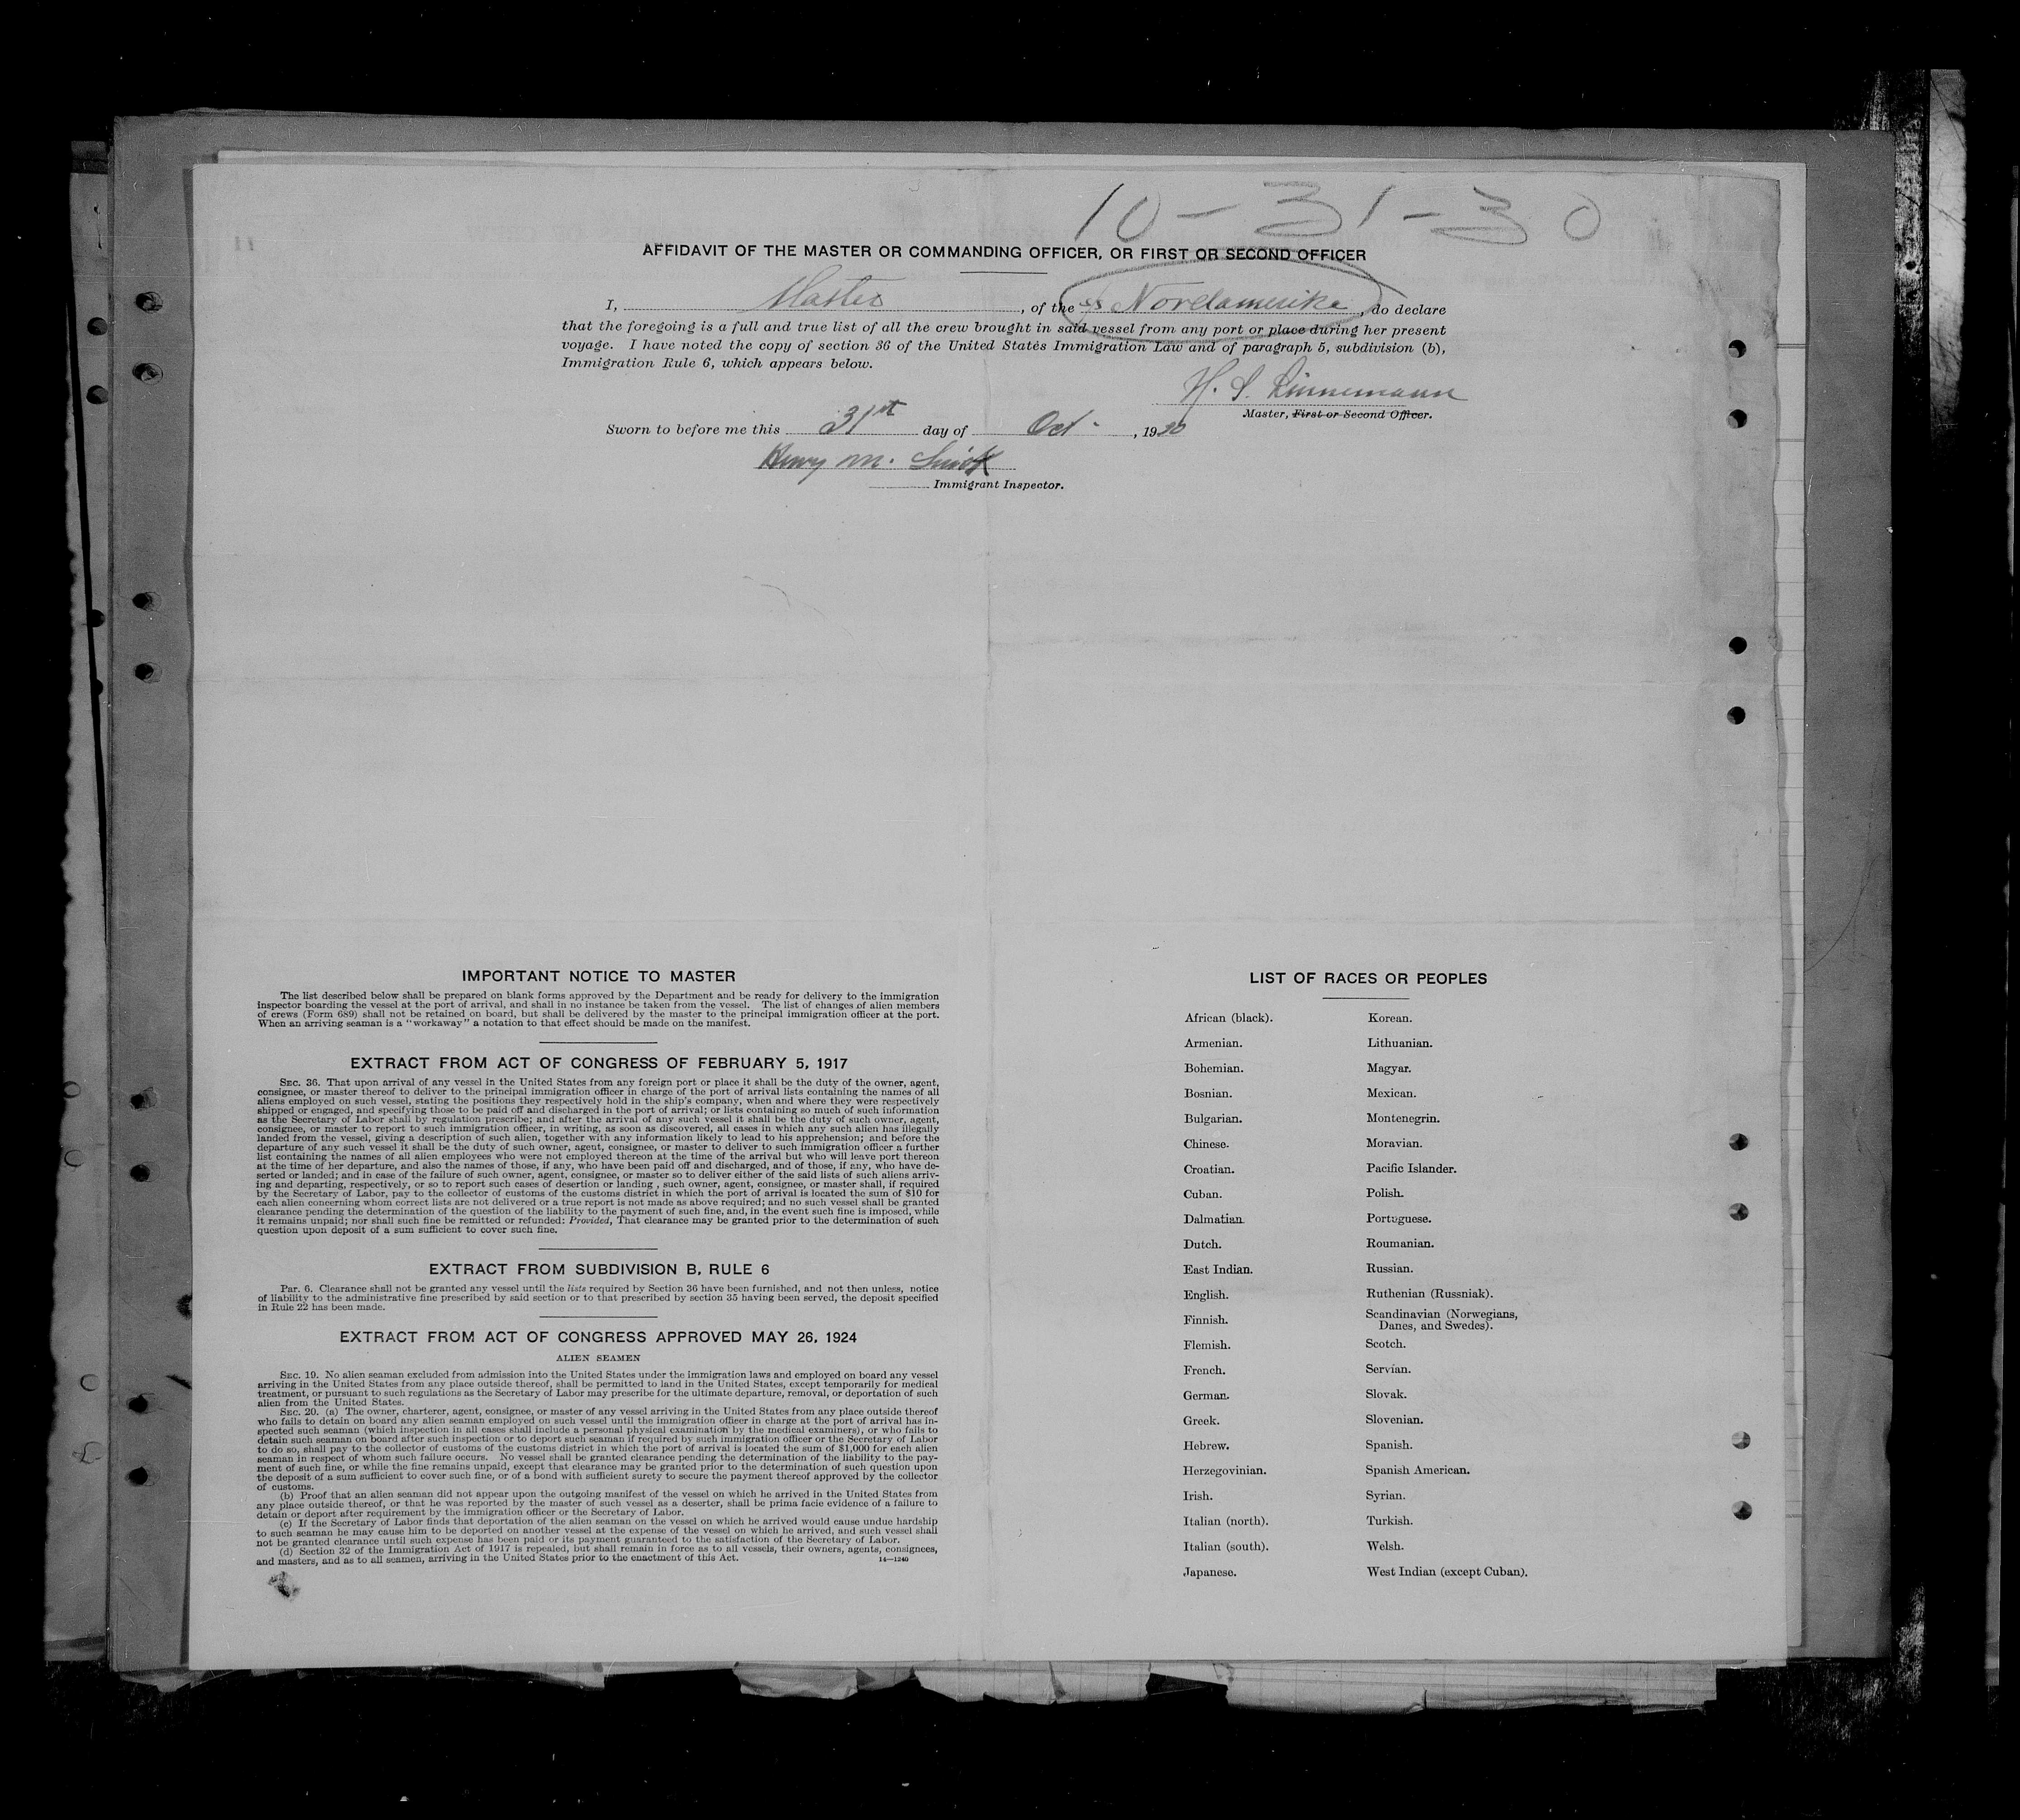 10-31-30
AFFIDAVIT OF THE MASTER OR COMMANDING OFFICER, OR FIRST OR SECOND OFFICER
I, Master, of the ss Nordamerika, do declare
that the foregoing is a full and true list of all the crew brought in said vessel from any port or place during her present
voyage. I have noted the copy of section 36 of the United States Immigration Law and of paragraph 5, subdivision (b),
Immigration Rule 6, which appears below.
H. S. Linnemann
Master, First or Second Officer.
Sworn to before me this 31st day of Oct., 1930
Henry M.
Immigrant Inspector.
IMPORTANT NOTICE TO MASTER
The list described below shall be prepared on blank forms approved by the Department and be ready for delivery to the immigration
inspector boarding the vessel at the port of arrival, and shall in no instance be taken from the vessel. The list of changes of alien members
of crews (Form 689) shall not be retained on board, but shall be delivered by the master to the principal immigration officer at the port.
When an arriving seaman is a "workaway" a notation to that effect should be made on the manifest.
EXTRACT FROM ACT OF CONGRESS OF FEBRUARY 5, 1917
SEC. 36. That upon arrival of any vessel in the United States from any foreign port or place it shall be the duty of the owner, agent,
consignee, or master thereof to deliver to the principal immigration officer in charge of the port of arrival lists containing the names of all
aliens employed on such vessel, stating the positions they respectively hold in the ship's company, when and where they were respectively
shipped or engaged, and specifying those to be paid off and discharged in the port of arrival; or lists containing so much of such information
as the Secretary of Labor shall by regulation prescribe; and after the arrival of any such vessel it shall be the duty of such owner, agent,
consignee, or master to report to such immigration officer, in writing, as soon as discovered, all cases in which any such alien has illegally
landed from the vessel, giving a description of such alien, together with any information likely to lead to his apprehension; and before the
departure of any such vessel it shall be the duty of such owner, agent, consignee, or master to deliver to such immigration officer a further
list containing the names of all alien employees who were not employed thereon at the time of the arrival but who will leave port thereon
at the time of her departure, and also the names of those, if any, who have been paid off and discharged, and of those, if any, who have de-
serted or landed; and in case of the failure of such owner, agent, consignee, or master so to deliver either of the said lists of such aliens arriv-
ing and departing, respectively, or so to report such cases of desertion or landing , such owner, agent, consignee, or master shall, if required
by the Secretary of Labor, pay to the collector of customs of the customs district in which the port of arrival is located the sum of $10 for
each alien concerning whom correct lists are not delivered or a true report is not made as above required; and no such vessel shall be granted
clearance pending the determination of the question of the liability to the payment of such fine, and, in the event such fine is imposed, while
it remains unpaid; nor shall such fine be remitted or refunded: Provided, That clearance may be granted prior to the determination of such
question upon deposit of a sum sufficient to cover such fine.
EXTRACT FROM SUBDIVISION B, RULE 6
Par. 6. Clearance shall not be granted any vessel until the lists required by Section 36 have been furnished, and not then unless, notice
of liability to the administrative fine prescribed by said section or to that prescribed by section 35 having been served, the deposit specified
in Rule 22 has been made.
EXTRACT FROM ACT OF CONGRESS APPROVED MAY 26, 1924
ALIEN SEAMEN
SEC. 19. No alien seaman excluded from admission into the United States under the immigration laws and employed on board any vessel
arriving in the United States from any place outside thereof, shall be permitted to land in the United States, except temporarily for medical
treatment, or pursuant to such regulations as the Secretary of Labor may prescribe for the ultimate departure, removal, or deportation of such
alien from the United States.
SEC. 20. (a) The owner, charterer, agent, consignee, or master of any vessel arriving in the United States from any place outside thereof
who fails to detain on board any alien seaman employed on such vessel until the immigration officer in charge at the port of arrival has in-
spected such seaman (which inspection in all cases shall include a personal physical examination by the medical examiners), or who fails to
detain such seaman on board after such inspection or to deport such seaman if required by such immigration officer or the Secretary of Labor
to do so, shall pay to the collector of customs of the customs district in which the port of arrival is located the sum of $1,000 for each alien
seaman in respect of whom such failure occurs. No vessel shall be granted clearance pending the determination of the liability to the pay-
ment of such fine, or while the fine remains unpaid, except that clearance may be granted prior to the determination of such question upon
the deposit of a sum sufficient to cover such fine, or of a bond with sufficient surety to secure the payment thereof approved by the collector
of customs.
(b) Proof that an alien seaman did not appear upon the outgoing manifest of the vessel on which he arrived in the United States from
any place outside thereof, or that he was reported by the master of such vessel as a deserter, shall be prima facie evidence of a failure to
detain or deport after requirement by the immigration officer or the Secretary of Labor.
(c) If the Secretary of Labor finds that deportation of the alien seaman on the vessel on which he arrived would cause undue hardship
to such seaman he may cause him to be deported on another vessel at the expense of the vessel on which he arrived, and such vessel shall
not be granted clearance until such expense has been paid or its payment guaranteed to the satisfaction of the Secretary of Labor.
(d) Section 32 of the Immigration Act of 1917 is repealed, but shall remain in force as to all vessels, their owners, agents, consignees,
and masters, and as to all seamen, arriving in the United States prior to the enactment of this Act.
14—1240
LIST OF RACES OR PEOPLES
African (black).
Armenian.
Bohemian.
Bosnian.
Bulgarian.
Chinese.
Croatian.
Cuban.
Dalmatian.
Dutch.
East Indian.
English.
Finnish.
Flemish.
French.
German.
Greek.
Hebrew.
Herzegovinian.
Irish.
Italian (north).
Italian (south).
Japanese.
Korean.
Lithuanian.
Magyar.
Mexican.
Montenegrin.
Moravian.
Pacific Islander.
Polish.
Portuguese.
Roumanian.
Russian.
Ruthenian (Russniak).
Scandinavian (Norwegians,
Danes, and Swedes).
Scotch.
Servian.
Slovak.
Slovenian.
Spanish.
Spanish American.
Syrian.
Turkish.
Welsh.
West Indian (except Cuban).